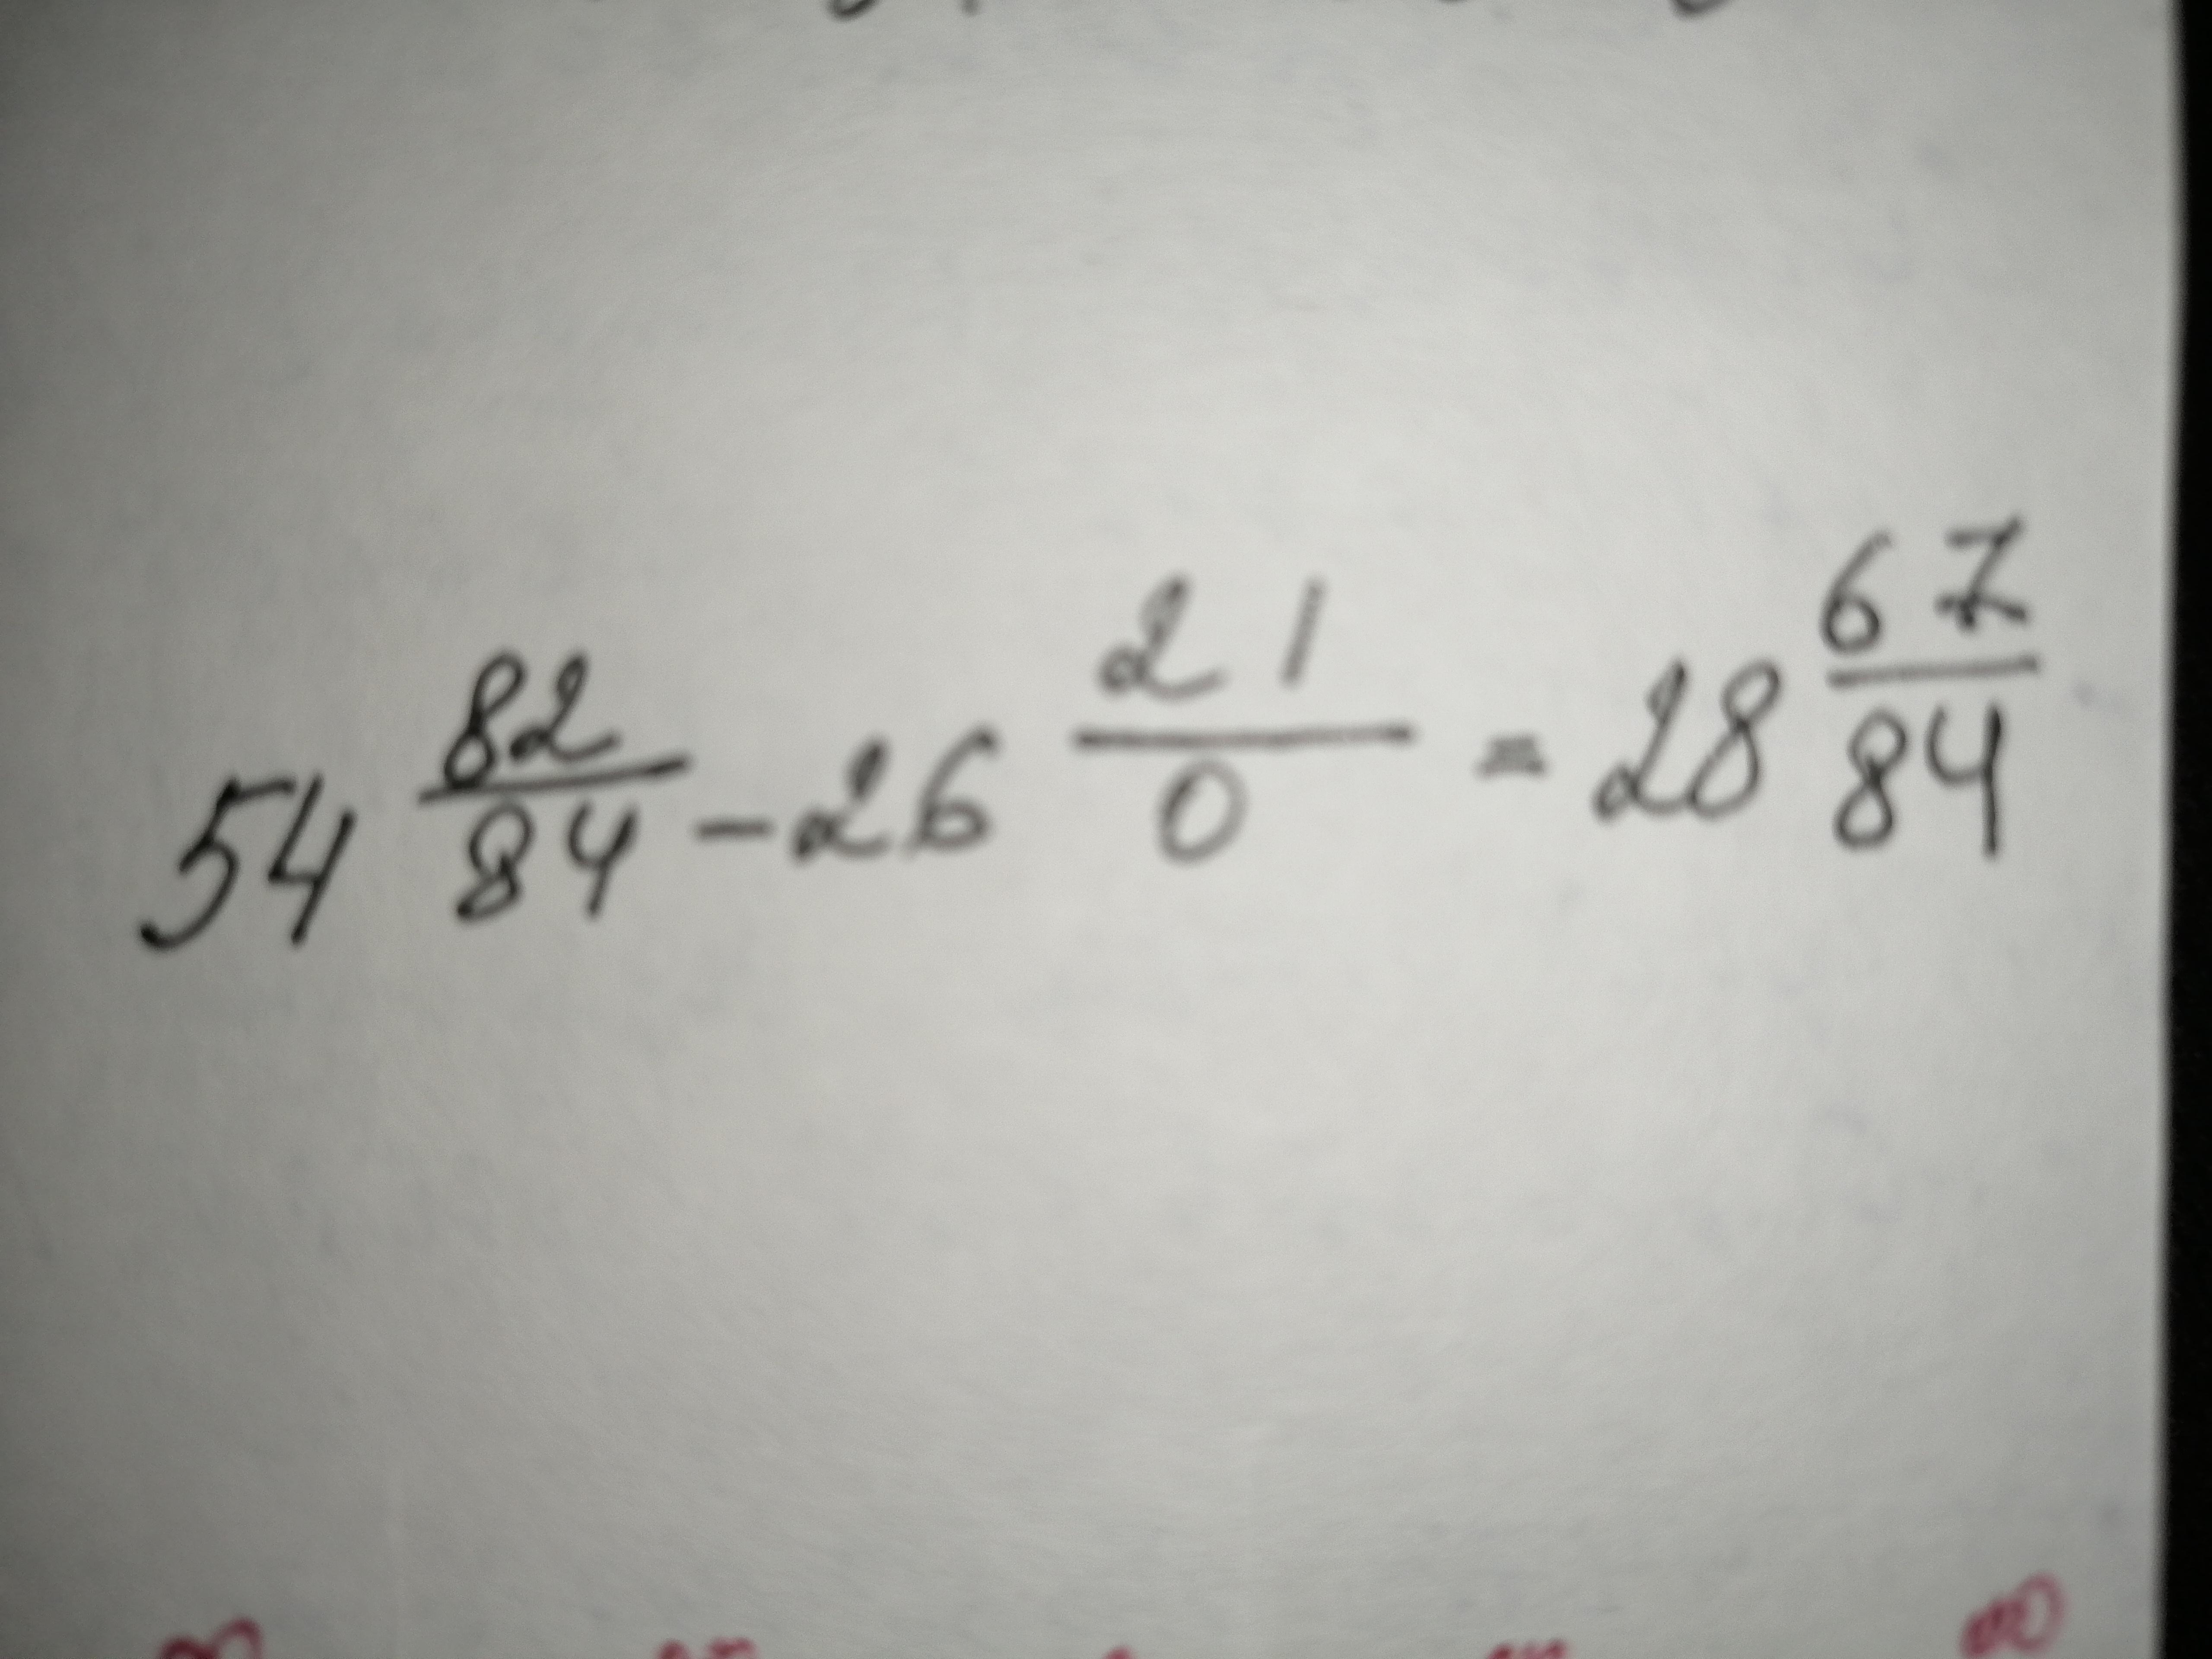 54 82/84 - 26 21/0 = 28 67/84